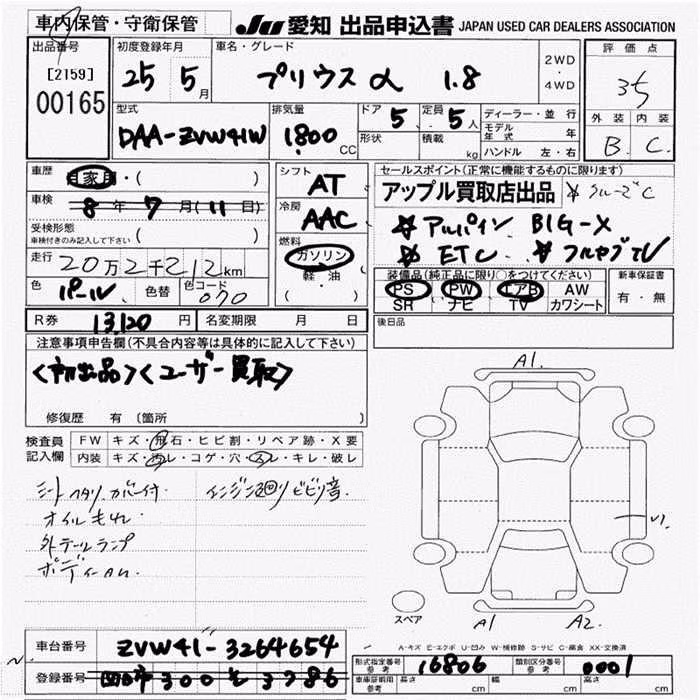 車内保管・守衛保管
JU 愛知 出品申込書 JAPAN USED CAR DEALERS ASSOCIATION
出品番号
[2159]
00165
初度登録年月
25 5月
車名・グレード
プリウス α 1.8
2WD
4WD
評価点
外装 内装
B C
型式
DAA-ZVW41W
排気量
1800 CC
ドア 5
定員 5人
形状
積載 kg
ディーラー・並行
モデル年式 年
ハンドル 左・右
車歴
自家・( )
車検
8年7月(11日)
受検形態
車検付きのみ記入して下さい ( )
走行
20万2千212km
色 パール 色替 色コード 070
シフト
AT
冷房
AAC
燃料
ガソリン
軽・油
( )
セールスポイント(正常に機能するものに限ります)
アップル買取店出品 ☆クルーズC
☆アルパイン BIG-X
☆ETC ☆フルセグTV
装備品(純正品に限り○をつけてください)
PS PW エアB AW
SR ナビ TV カワシート
新車保証書
有・無
R券 13,120円 名変期限 月 日
後日品
注意事項申告欄(不具合内容等は具体的に記入して下さい)
<初出品><ユーザー買取>
修復歴 有 〔箇所 〕
検査員記入欄
FW キズ・飛石・ヒビ割・リペア跡・X要
内装 キズ・汚レ・コゲ・穴・スレ・キレ・破レ
シートヘタリ、カバー付
エンジン廻りビビリ音
オイルもれ
外テールランプ
A1
スペア
A1 A2
A・キズ E・エクボ U・凹み W・補修跡 S・サビ C・腐食 XX・交換済
車台番号 ZVW41-3264654
登録番号 300 3786
形式指定番号 参考 16806
類別区分番号 参考 0001
車庫証明用 参考 長さ cm 幅 cm 高さ cm